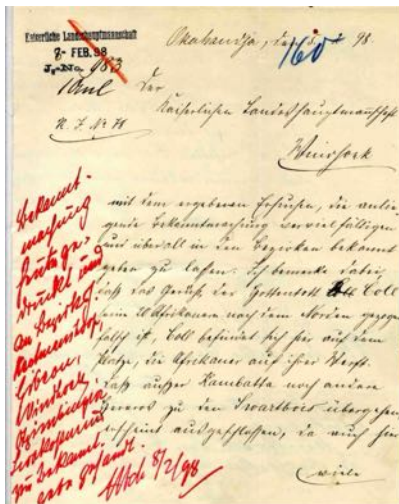 Kaiserliche Landeshauptmannschaft
8- FEB. 98
J.-No. 983
Okahandja, den 5. 2. 98.
160
1 Anl
Der
Kaiserlichen Landeshauptmannschaft
N. J. No 78
Windhoek
mit dem ergebenen Ersuchen, die anlie-
gende Bekanntmachung vervielfältigen
und überall in den Bezirken bekannt
geben zu lassen. Ich bemerke dabei,
daß das Gerücht, der Hottentott Coll
sei mit 20 Afrikanern nach dem Norden gezogen
falsch ist, Coll befindet sich hier auf dem
Platze, die Afrikaner auf ihrer Werft.
Daß außer Kambatta noch andere
Hereros zu den Swartbois übergehen
erscheint ausgeschlossen, da auch hier
viele
Bekannt-
machung
heute ge-
druckt und
an Bezirke
Keetmanshoop,
Gibeon,
Windhoek,
Otjimbingwe,
Swakopmund
zur Bekannt-
gabe gesandt.
8/2/98